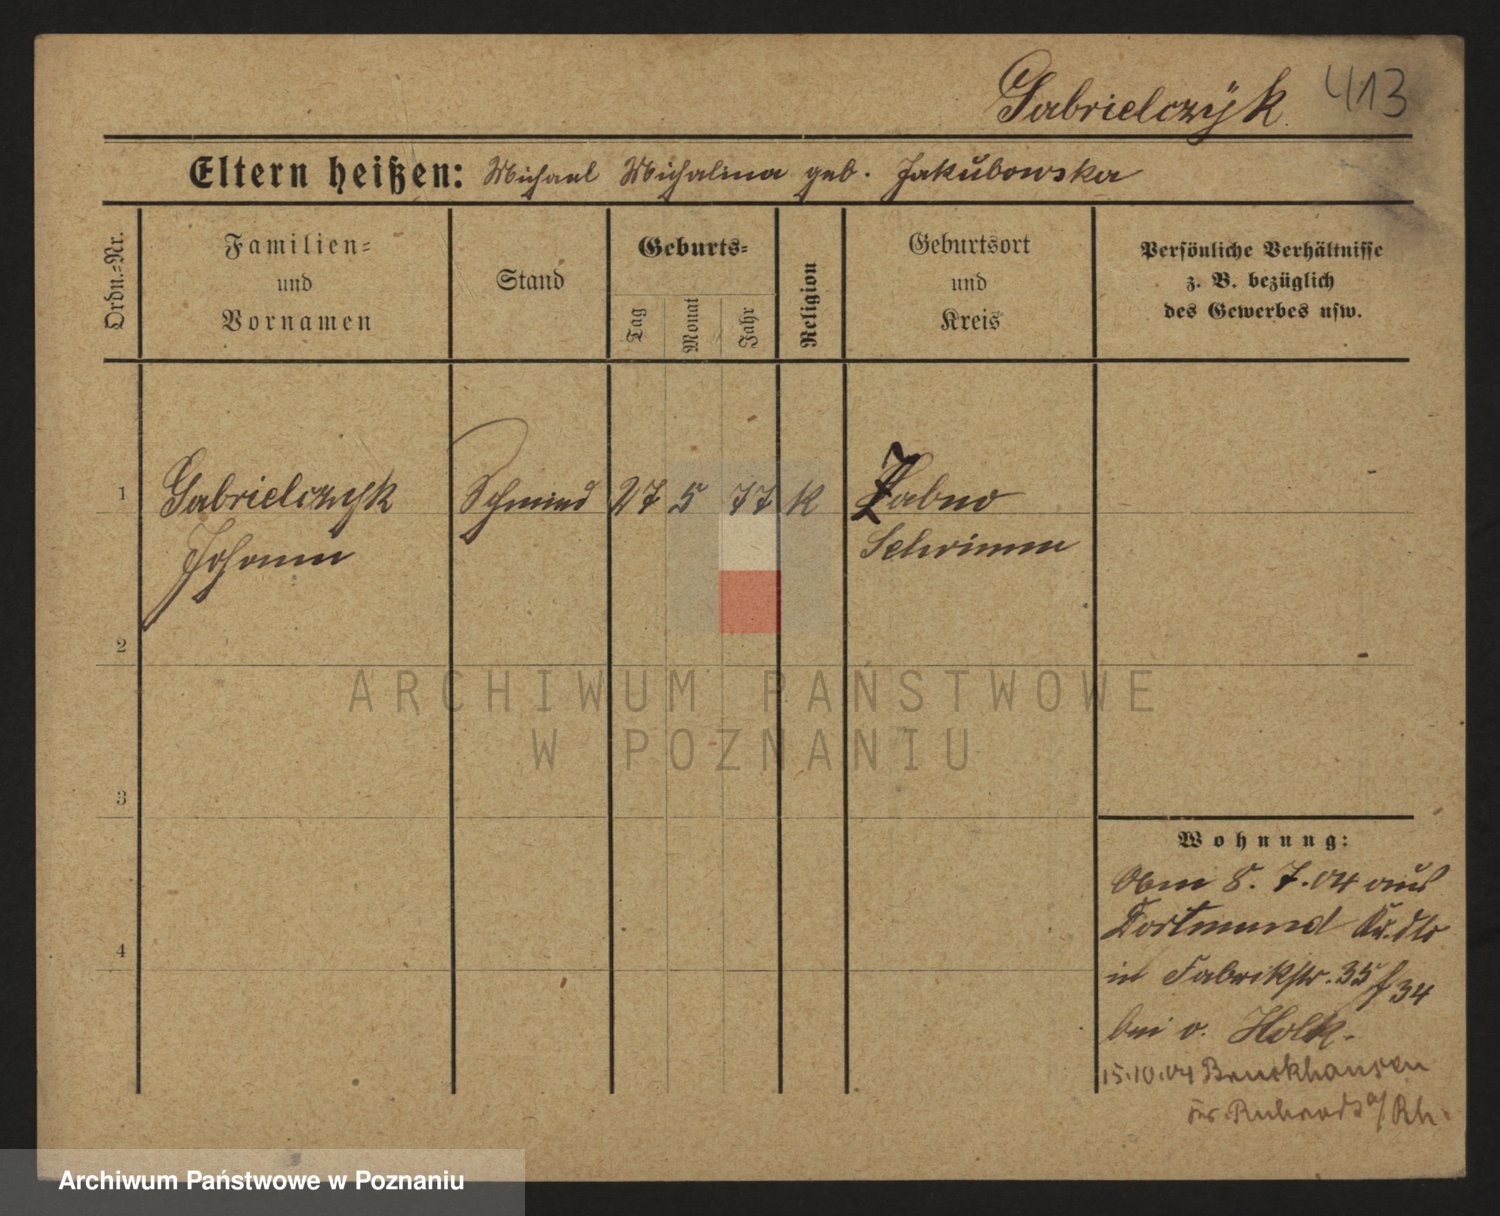 Gabrielczyk 413
Eltern heißen: Michael Michalina geb. Jakubowska
Ordn.-Nr.
Familien-
und
Vornamen
Stand
Geburts-
Tag
Monat
Jahr
Religion
Geburtsort
und
Kreis
Persönliche Verhältnisse
z. B. bezüglich
des Gewerbes usw.
1 Gabrielczyk Schmied 27 5 77 K Zabno
Johann Schrimm
2
ARCHIWUM PAŃSTWOWE
W POZNANIU
3
4
Wohnung:
8. 7. 04 aus
Dortmund
in Fabrikstr. 35 34
bei v. Holk.
15.10.04 Bruckhausen
a/Rh.
Archiwum Państwowe w Poznaniu